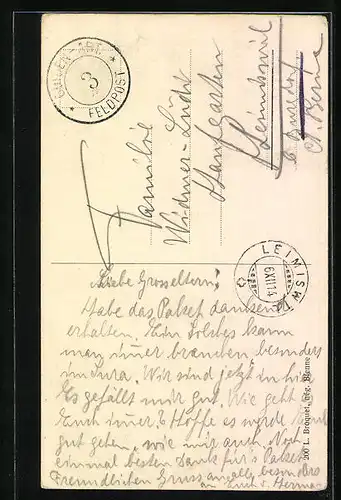 3
FELDPOST
Familie
Widmer-Lüdi
Hanfgarten
Heimiswil
b. Burgdorf
Kt. Berne
LEIMISWIL
6.XII.14
Liebe Grosseltern!
Habe das Paket dankend
erhalten. Ein solches kann
man immer brauchen besonders
im Jura. Wir sind jetzt in
Es gefällt mir gut. Wie geht's
Euch immer? Hoffe es werde
gut gehen, wie mir auch. Noch
einmal besten Dank für's Paket.
Freundlichen Gruss an alle, besonders
an Euch v. Herma
200 L. Broquet, Dég. Bienne